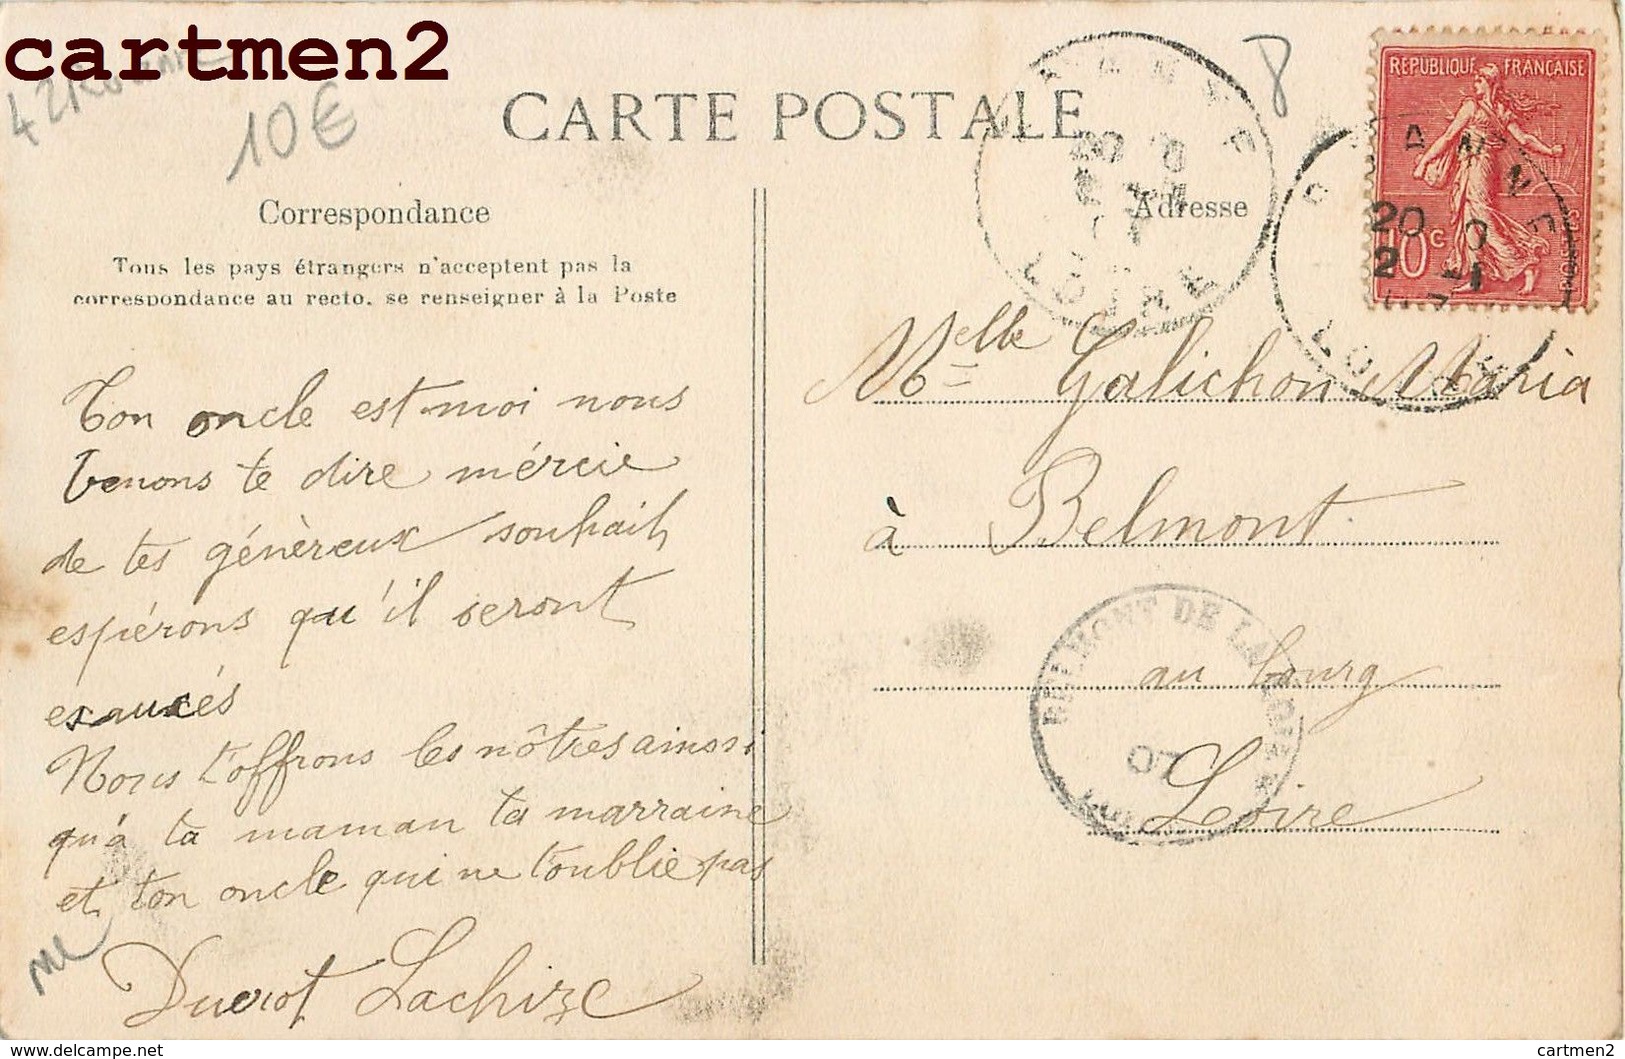 cartmen2
10€
8
CARTE POSTALE
Correspondance
Tous les pays étrangers n'acceptent pas la
correspondance au recto. se renseigner à la Poste
Ton oncle est moi nous
venons te dire mércie
de tes génèreux souhaits
espérons qu'il seront
exaucés
Nous t'offrons les nôtres ainssi
qu'à ta maman ta marraine
et ton oncle qui ne t'oublie pas
Lachize
Adresse
REPUBLIQUE FRANÇAISE
10c
LOIRE
Melle Galichon Maria
à Belmont
au bourg
Loire
BELMONT DE LA LOIRE
delcampe.net
cartmen2